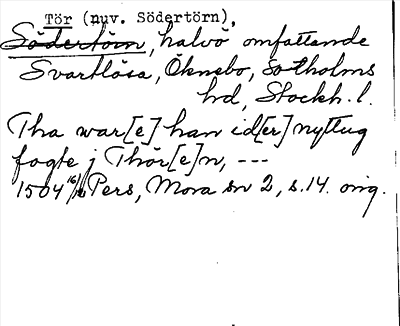 Tör (nuv. Södertörn),
Södertörn, halvö omfattande
Svartlösa, Öknebo, Sotholms
hd, Stockh. l.
Tha war[e] han id[er] nyttug
fogte j Thör[e]n, ---
1504 16/12 Pers, Mora sn 2, s. 14. orig.